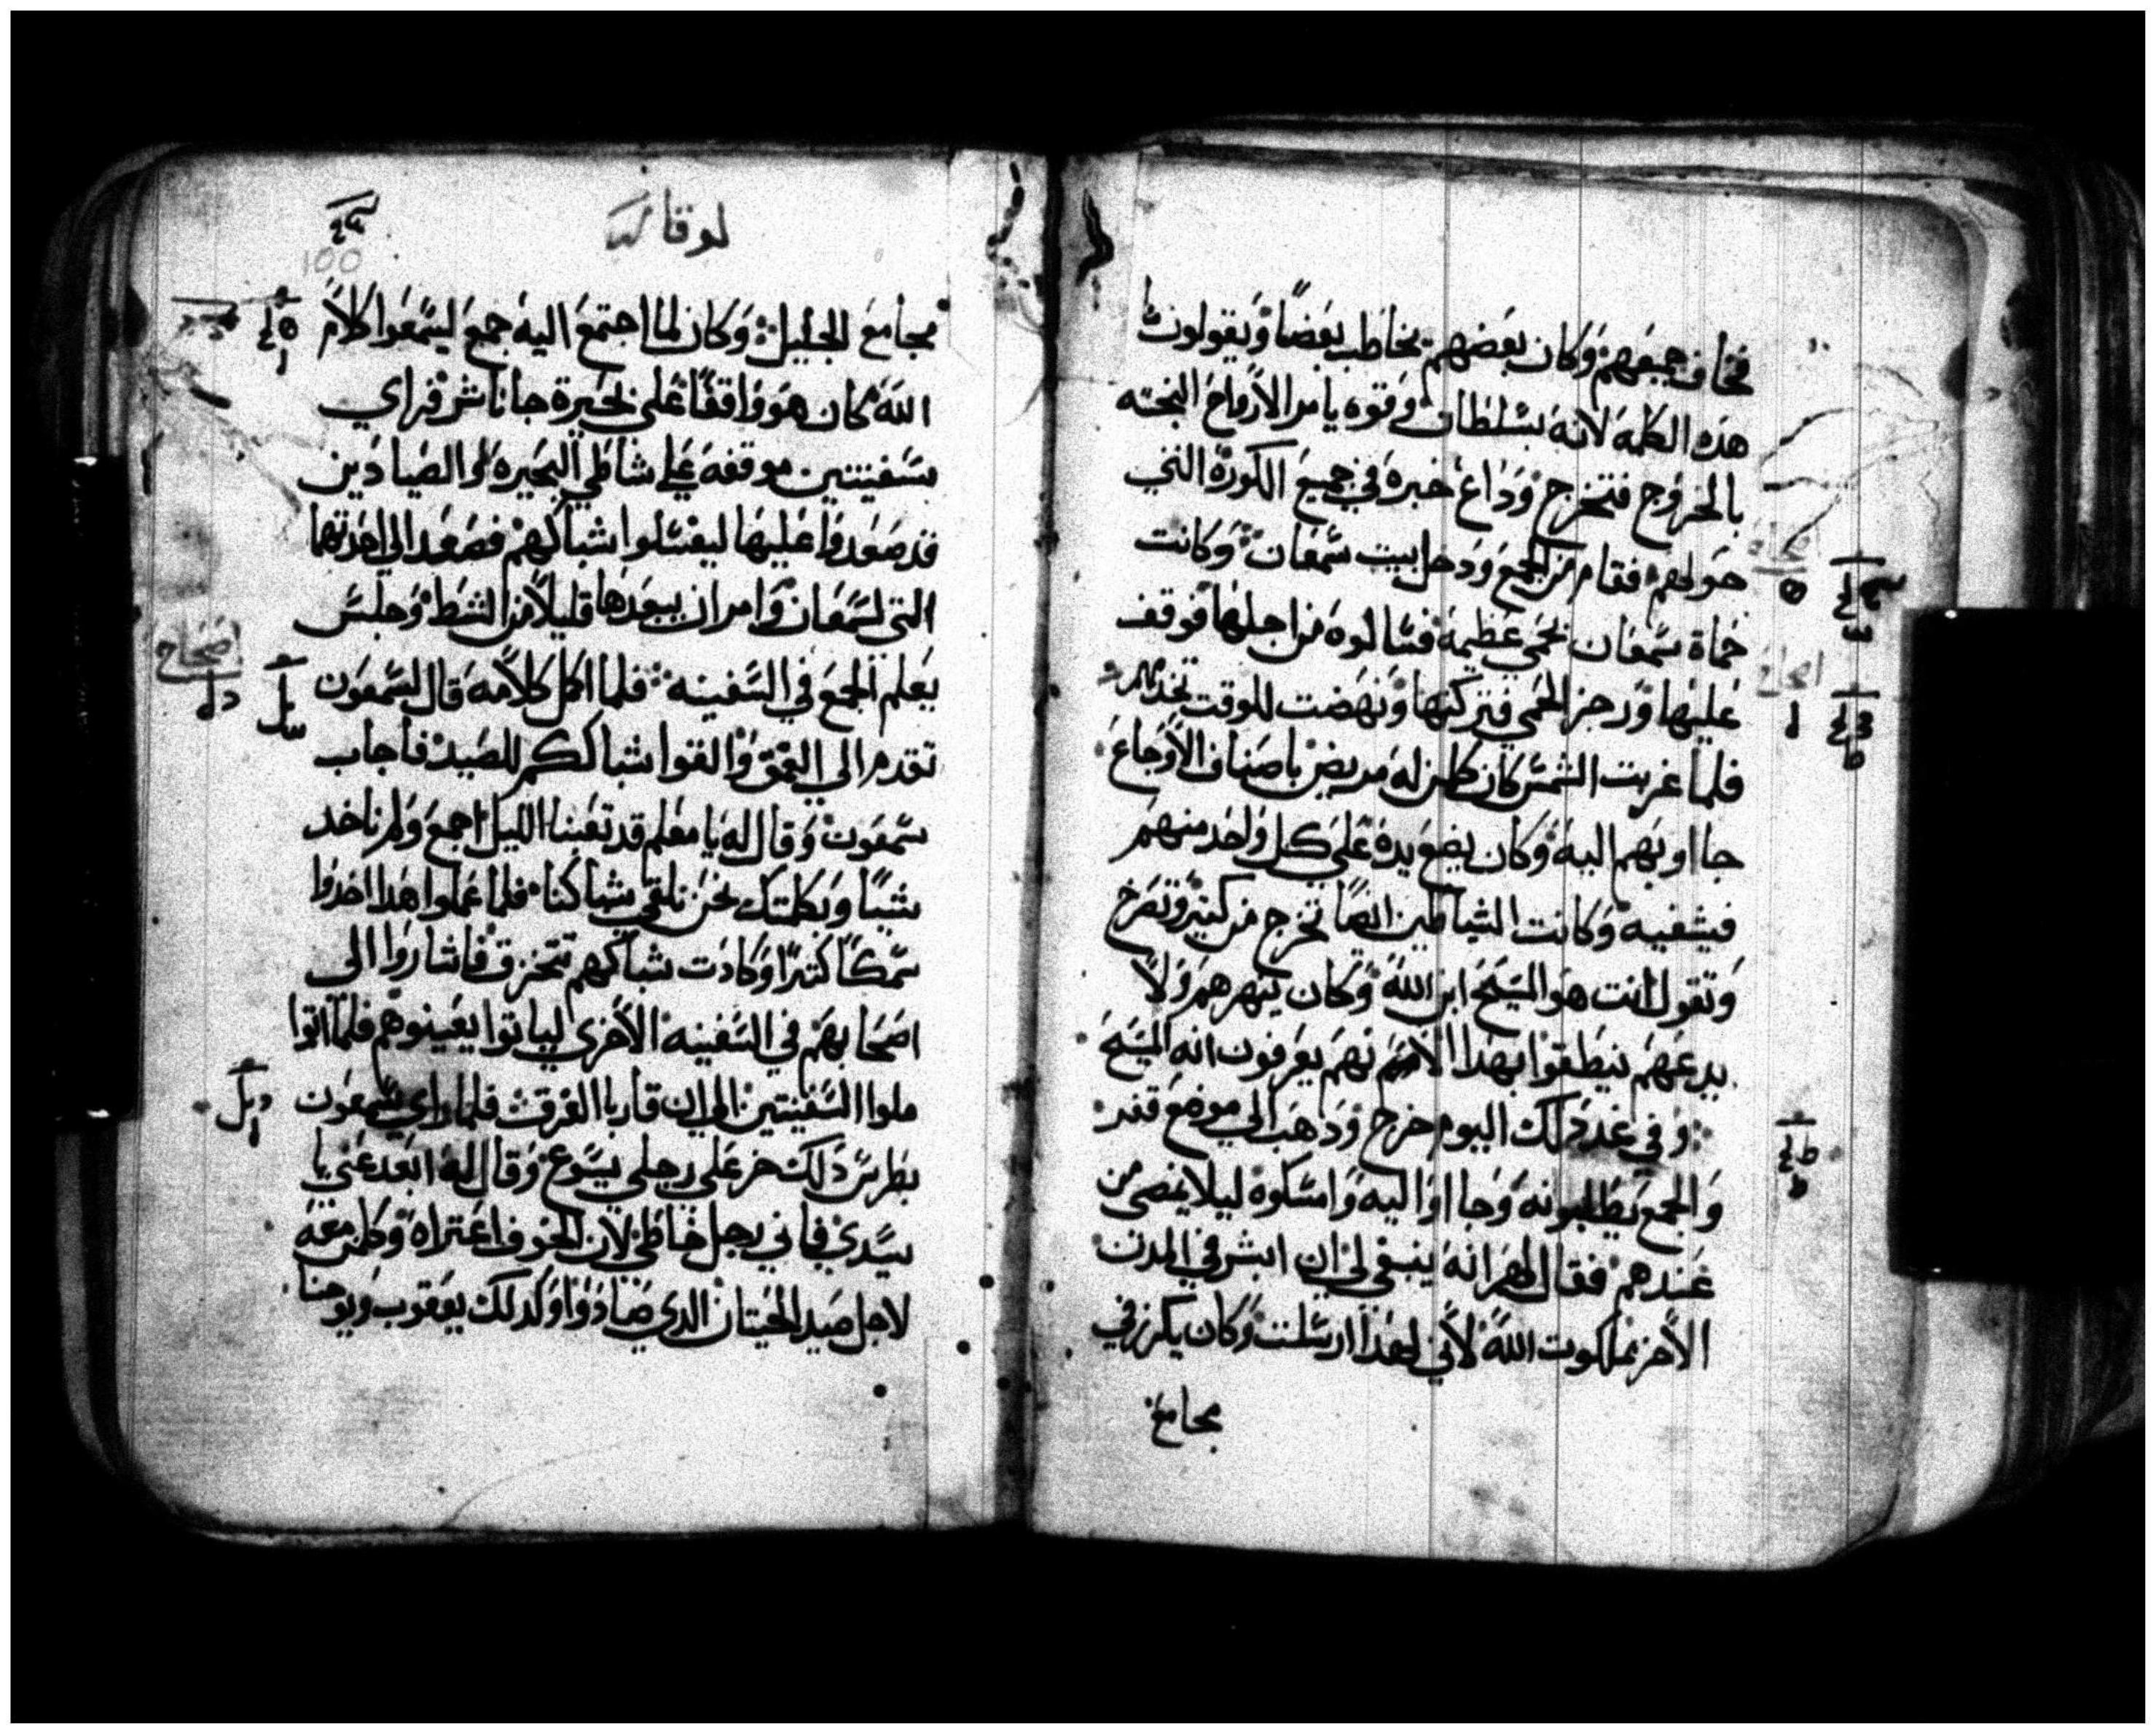 فخاف جميعهم وكان بعضهم يخاطب بعضًا ويقولون
هذه الكلمه لانه بسلطان وقوه يامر الارواح النجسه
بالخروج فتخرج وذاع خبره في جميع الكورة التي
حولهم فقام من الجمع ودخل بيت سمعان وكانت
حماة سمعان بحمي عظيمة فسالوه من اجلها فوقف
عليها وزجر الحمي فتركتها ونهضت للوقت تخدمهم
فلما غربت الشمس كان كلمن له مريض باصناف الاوجاع
جااوبهم اليه وكان يضع يده علي كل واحد منهم
فيشفيه وكانت الشياطين ايضًا تخرج من كثير وتصرخ
وتقول انت هو المسيح ابن الله وكان ينهرهم ولا
يدعهم ينطقوا بهذا لانهم يعرفون انه المسيح
وفي غد ذلك اليوم خرج وذهب الي موضع قفر
والجمع يطلبونه وجااوا اليه وامسكوه ليلا يمضي من
عندهم فقال لهم انه ينبغي لي ان ابشر في المدن
الاخر بملكوت الله لاني لهذا ارسلت وكان يكرز في
مجامع
لوقا
100
مجامع الجليل وكان لما اجتمع اليه جمع ليسمعوا كلام
الله كان هو واقفًا علي بحيرة جاناشر فراي
سفينتين موقفه علي شاطي البحيره والصيادين
قد صعدوا عليها ليغسلوا شباكهم فصعد الي احدتهما
التي لسمعان وامر ان يبعدها قليلاً من الشط وجلس
يعلم الجمع في السفينه فلما اكمل كلامه قال لسمعون
تقدم الي العمق والقوا شباككم للصيد فاجاب
سمعون وقال له يا معلم قد تعبنا الليل اجمع ولم ناخد
شيًا وبكلمتك نحن نلقي شباكنا فلما عملوا هدا اخدوا
سمكًا كثيرًا وكادت شباكهم تتخرق فاشاروا الي
اصحابهم في السفينه الاخري لياتوا يعينوهم فلما اتوا
ملوا السفينتين الي ان قاربا الغرق فلما راي سمعون
بطرس ذلك خر علي رجلي يسوع وقال له ابعد عني يا
سيدي فاني رجل خاطي لان الخوف اعتراه وكلمن معه
لاجل صيد الحيتان الدي صادوا وكدلك يعقوب ويوحنا